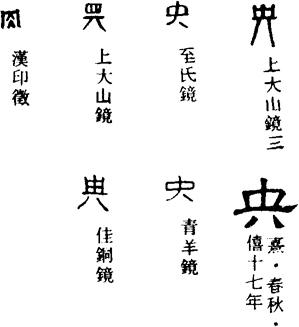 央
上大山鏡三
央
至氏鏡
央
上大山鏡
央
漢印徵
央
熹・春秋・
僖十七年
央
青羊鏡
央
佳銅鏡